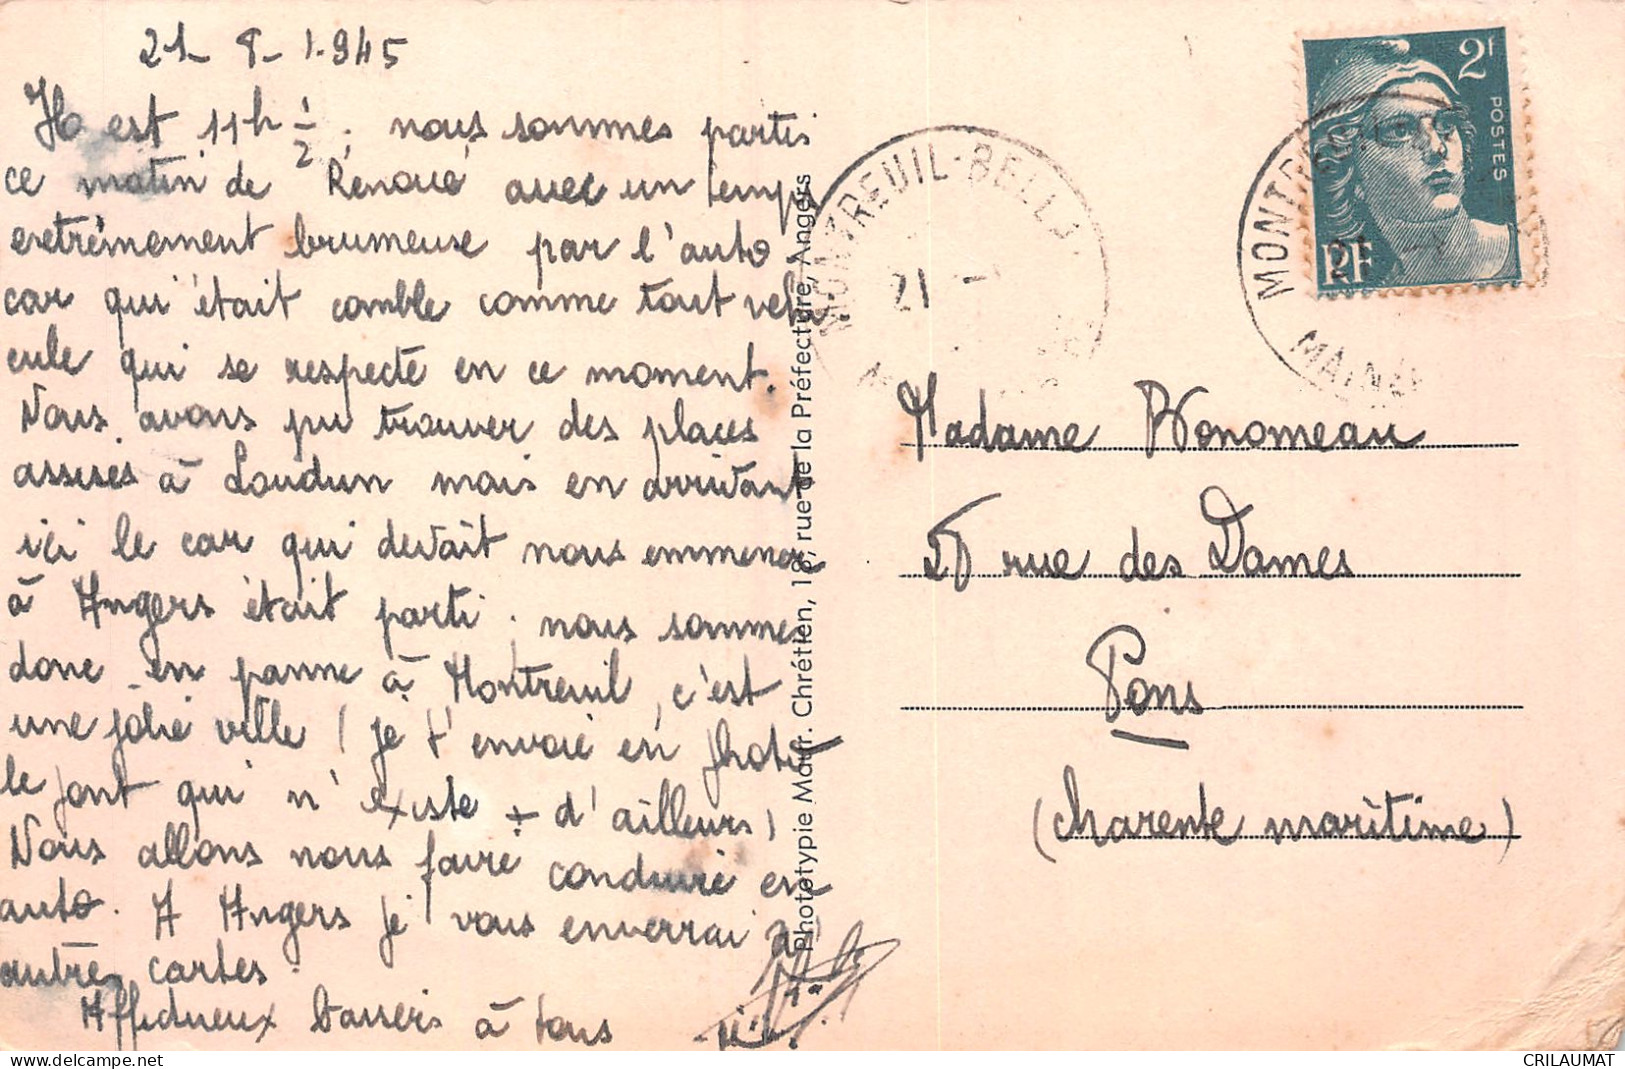 21- 8- 1.945
Il est 11h 1/2 ; nous sommes partis
ce matin de Renoué avec un temps
extrêmement brumeuse par l'auto
car qui était comble comme tout véhi
cule qui se respecte en ce moment.
Nous avons pu trouver des places
assises à Loudun mais en arrivant
ici le car qui devait nous emmener
à Angers était parti. nous sommes
donc en panne à Montreuil, c'est
une jolie ville ! je t'envoie en photo
le pont qui n'existe + d'ailleurs)
Nous allons nous faire conduire en
auto. A Angers je vous enverrai d'
autres cartes.
Affectueux baisers à tous
Phototypie Maur. Chrétien, 18, rue de la Préfecture, Angers
MONTREUIL-BELLA
21 -
2f
POSTES
RF
MONTRE
21 -
MAINE
Madame Bonomeau
rue des Dames
Pons
(Charente maritime)
CRILAUMAT